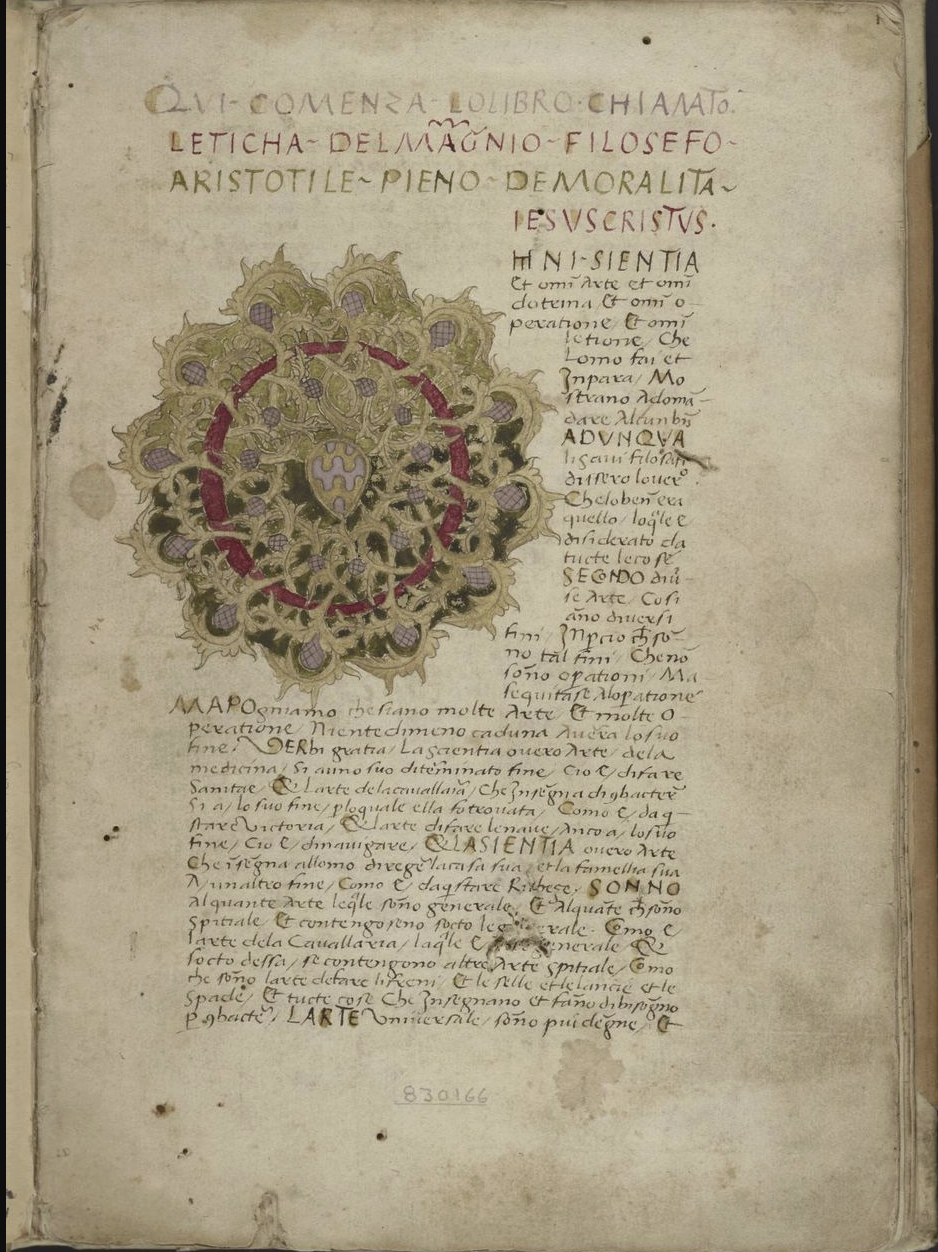 QVI · COMENZA · LOLIBRO · CHIAMATO ·
LETICHA ~ DEL MAGNIO ~ FILOSEFO ~
ARISTOTILE ~ PIENO ~ DEMORALITA ~
IESVSCRISTVS ·
NI · SIENTIA
Et omī Arte et omī
dotrina / Et omī o-
peratione / Et omī
letione / Che
Lomo fai et
Inpara / Mo
strano Adomā-
dare Alcun bñ
ADVNQVA
li savi filosafi
dissero lo ver° .
Che lo ben era
quello / loq̄le e
disiderato da
tucte le cose
SECONDO
se Arte / Cosi
āno diversi
fini / Inpcio ch̄ so-
no tal fini / Che nō
soño opationi / Ma
sequitase Aloperatione
MAPOgniamo che siano molte Arte / Et molte O-
peratione / Niente dimeno caduna Avera lo suo
fine / VERbi gratia / La scientia overo Arte / dela
medicina / Si anno suo diterminato fine / Cio e / di fare
Sanitae / & Larte dela cavallaria / Che Insegna di 9bacter
Si a / lo suo fine / ploquale ella fo trovata / Como e / da q-
stare Victoria / & larte di fare le nave / Anco a / lo suo
fine / Cio e / di navigare / & LASIENTIA overo Arte
Che īsegna allomo di rege la casa sua / et la famellia sua
A / un altro fine / Como e / daq̄stare Richece / SONNO
Alquante Arte leq̄le soño generale / Et Alquāte ch̄ soño
Spitiale / Et contengoseno socto le generale - Como e
larte dela Cavallaria / laq̄le e Arte generale &
socto dessa / se contengono altre Arte spitiale / Como
che soño larte defare li freni / Et le selle et le lancie et le
Spade / Et tucte cose Che Insegnano et fano di bisogno
p 9bacte / LARTE Universale / soño piu degne / Et
830166
1